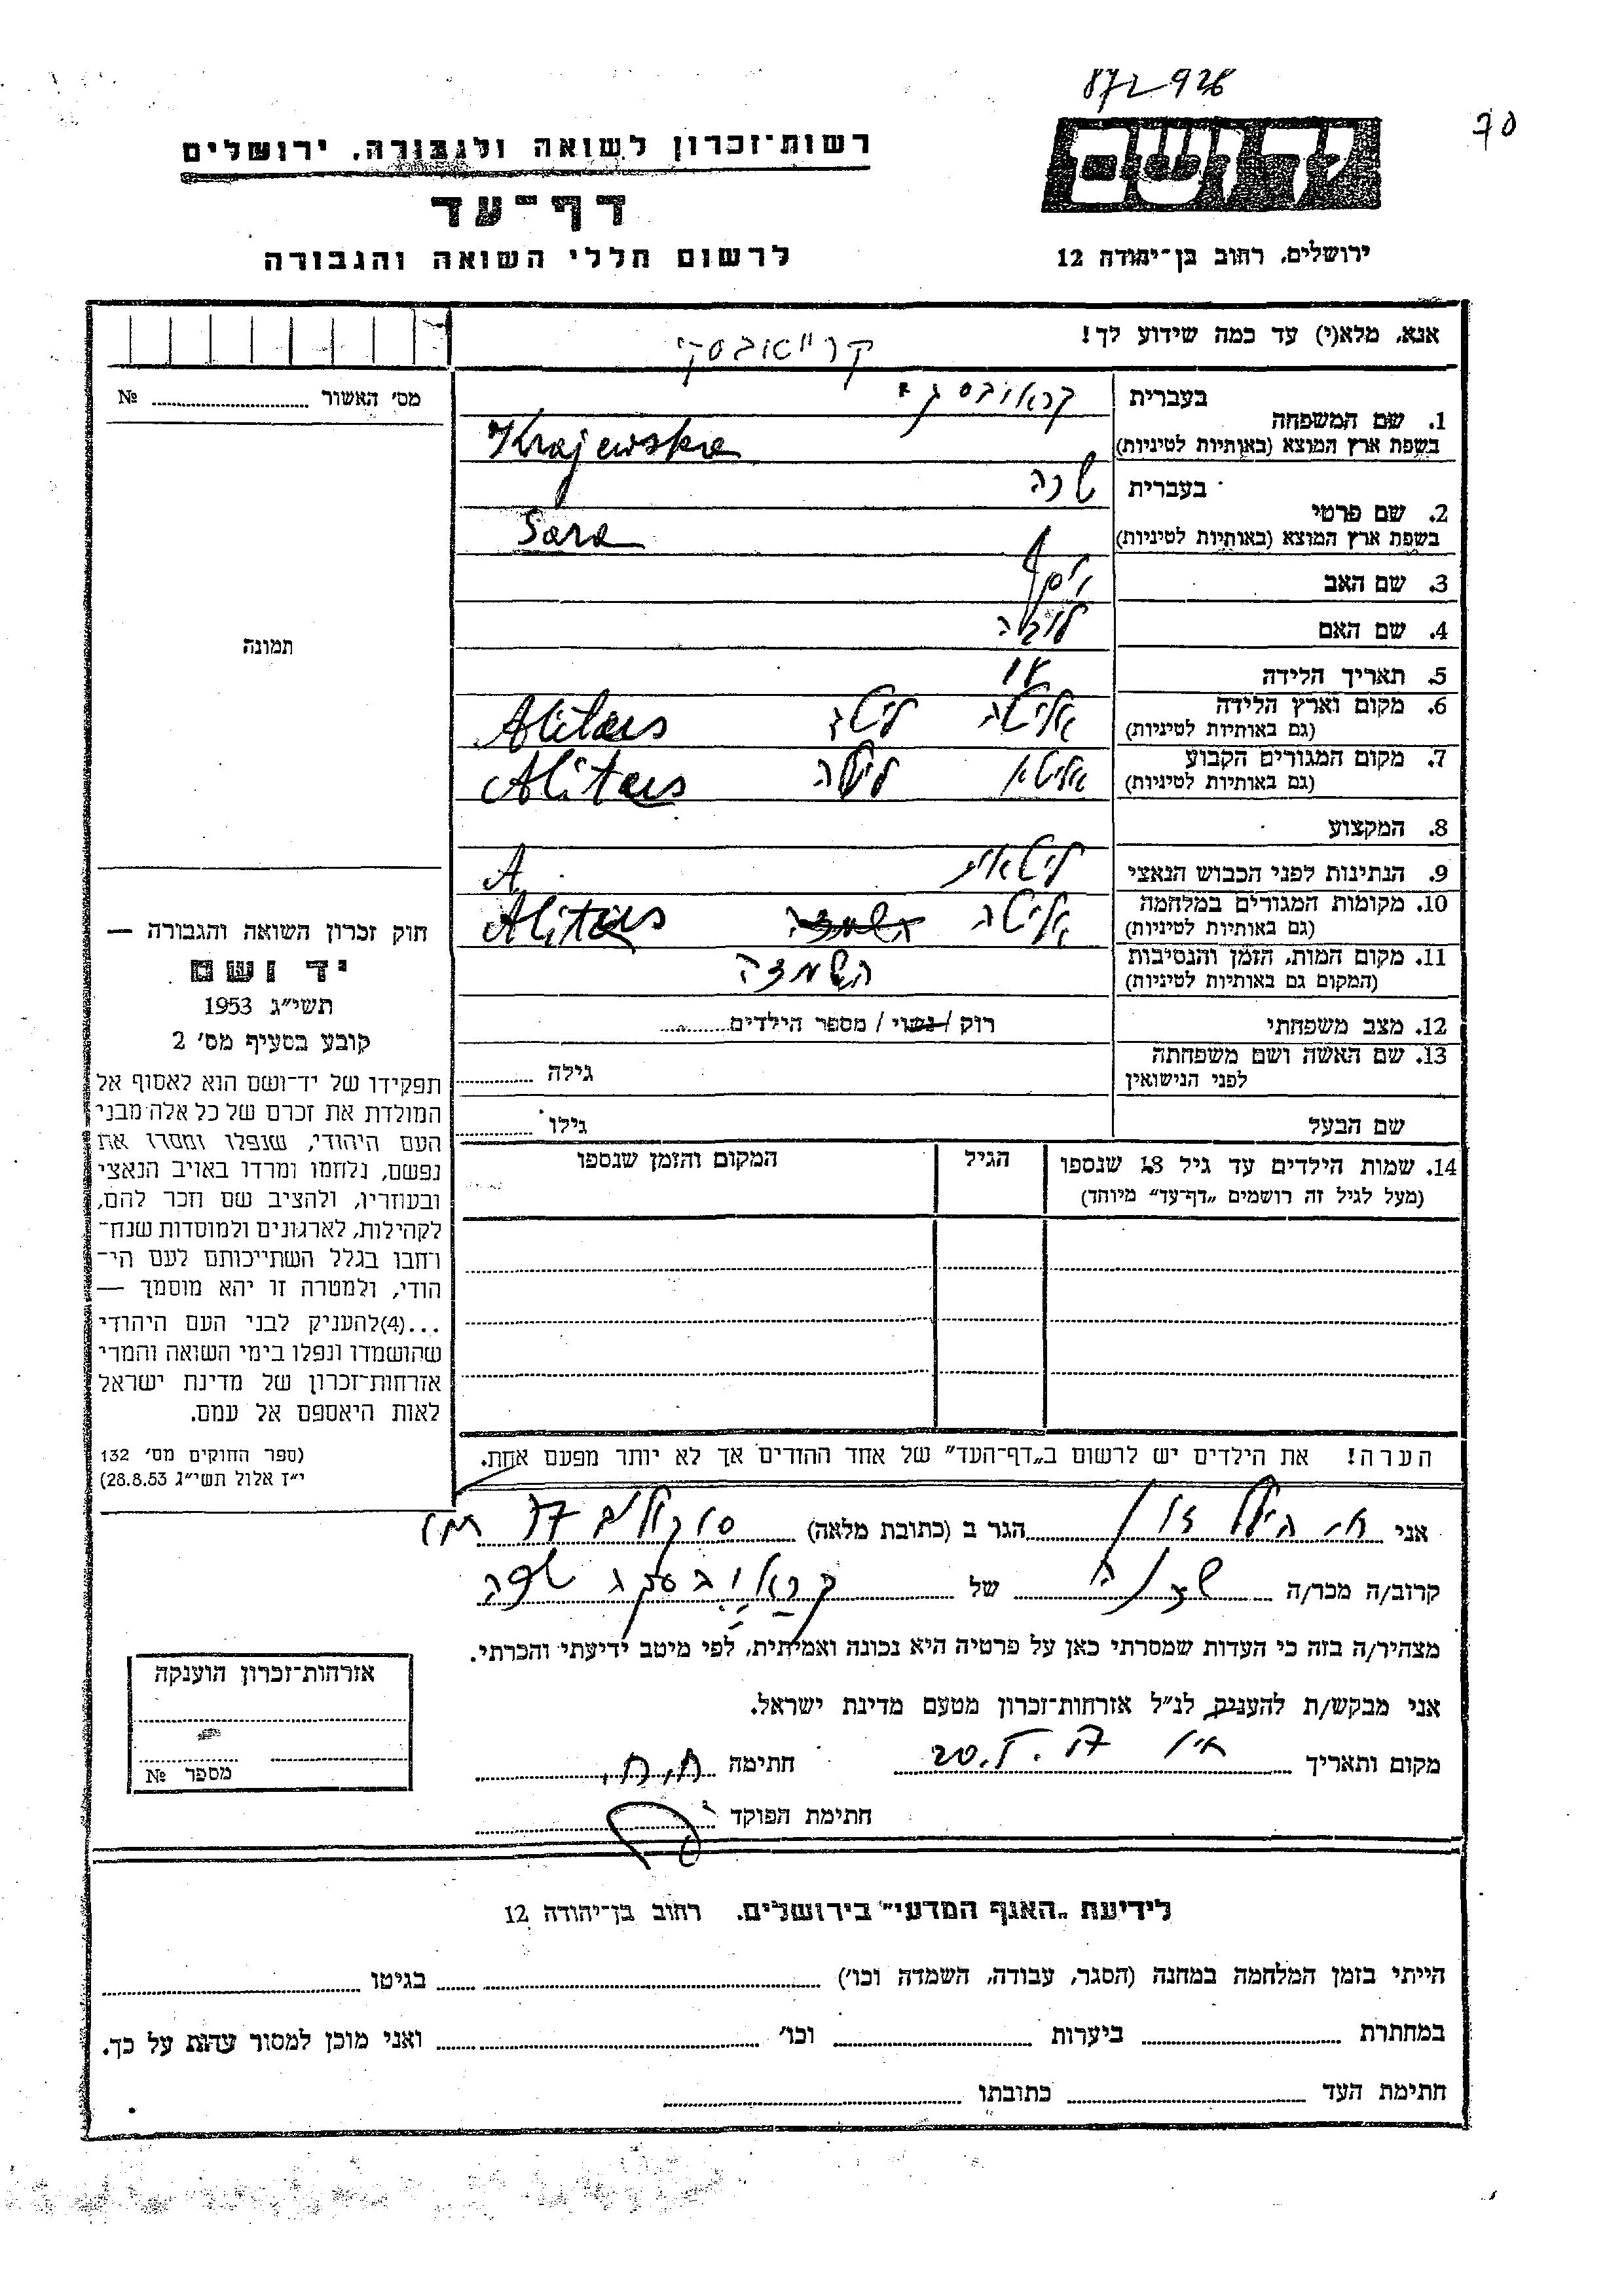 872926
70
רשות־זכרון לשואה ולגבורה, ירושלים
דף־עד
לרשום חללי השואה והגבורה
ירושלים, רחוב בן־יהודה 12
אנא, מלא(י) עד כמה שידוע לך!
קרייאבסקי
מס׳ האשור № 
1. שם המשפחה
בעברית
בשפת ארץ המוצא (באותיות לטיניות) Krajewska
2. שם פרטי
בעברית שרה
בשפת ארץ המוצא (באותיות לטיניות) Sara
3. שם האב יוסף
4. שם האם
5. תאריך הלידה
6. מקום וארץ הלידה אליטה ליטא Alitus
(גם באותיות לטיניות)
7. מקום המגורים הקבוע אליטא ליטה Alitus
(גם באותיות לטיניות)
8. המקצוע
9. הנתינות לפני הכבוש הנאצי ליטאית A
10. מקומות המגורים במלחמה אליטה השמדה Alitus
(גם באותיות לטיניות)
11. מקום המות, הזמן והנסיבות השמדה
(המקום גם באותיות לטיניות)
12. מצב משפחתי רוק / נשוי / מספר הילדים
13. שם האשה ושם משפחתה גילה
לפני הנישואין
שם הבעל גילו
14. שמות הילדים עד גיל 18 שנספו הגיל המקום והזמן שנספו
(מעל לגיל זה רושמים „דף־עד״ מיוחד)
הערה! את הילדים יש לרשום ב„דף־העד״ של אחד ההורים אך לא יותר מפעם אחת.
תמונה
חוק זכרון השואה והגבורה —
יד ושם
תשי״ג 1953
קובע בסעיף מס׳ 2
תפקידו של יד־ושם הוא לאסוף אל
המולדת את זכרם של כל אלה מבני
העם היהודי, שנפלו ומסרו את
נפשם, נלחמו ומרדו באויב הנאצי
ובעוזריו, ולהציב שם וזכר להם,
לקהילות, לארגונים ולמוסדות שנח־
רבו בגלל השתייכותם לעם הי־
הודי, ולמטרה זו יהא מוסמך —
...(4)להעניק לבני העם היהודי
שהושמדו ונפלו בימי השואה והמרי
אזרחות־זכרון של מדינת ישראל
לאות היאספם אל עמם.
(ספר החוקים מס׳ 132
י״ז אלול תשי״ג 28.8.53)
אני הגר ב (כתובת מלאה) סוקולוב
קרוב/ה מכר/ה שכנה של קראייבסקי שרה
מצהיר/ה בזה כי העדות שמסרתי כאן על פרטיה היא נכונה ואמיתית, לפי מיטב ידיעתי והכרתי.
אני מבקש/ת להעניק לנ״ל אזרחות־זכרון מטעם מדינת ישראל.
מקום ותאריך חתימה
חתימת הפוקד
אזרחות־זכרון הוענקה
מספר №
לידיעת „האגף המדעי״ בירושלים, רחוב בן־יהודה 12
הייתי בזמן המלחמה במחנה (הסגר, עבודה, השמדה וכו׳) בגיטו
במחתרת ביערות וכו׳ ואני מוכן למסור עדות על כך.
חתימת העד כתובתו